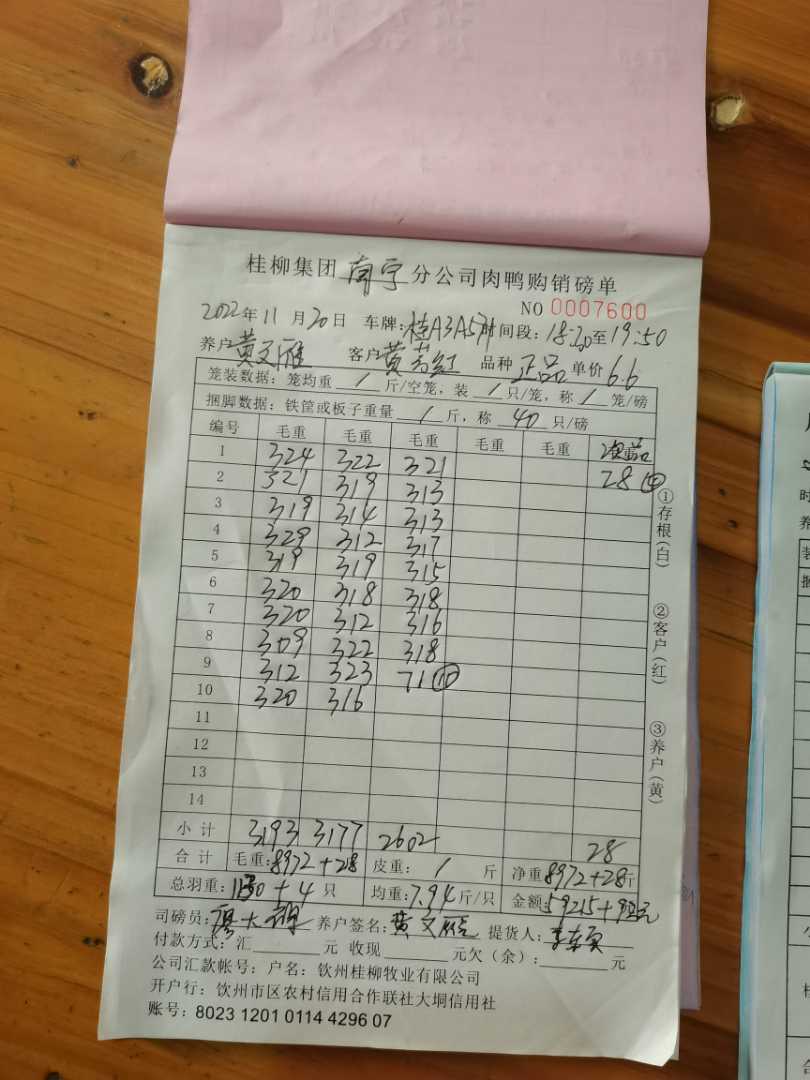 桂柳集团南宁分公司肉鸭购销磅单
NO 0007600
2022年11月20日 车牌:桂A3A5 时间段:18:20至19:50
养户黄文雁 客户黄 红 品种正品单价6.6
笼装数据:笼均重 / 斤/空笼,装 / 只/笼,称 / 笼/磅
捆脚数据:铁筐或板子重量 / 斤,称 40 只/磅
编号 毛重 毛重 毛重 毛重 毛重
1 324 322 321 28④
2 321 319 313
3 319 314 313
4 329 312 317
5 319 319 315
6 320 318 318
7 320 312 316
8 309 322 318
9 312 323 71⑩
10 320 316
11
12
13
14
小计 3193 3177 2602 28
合计 毛重:8972+28 皮重: / 斤 净重8972+28斤
总羽重:1130+4只 均重:7.94斤/只 金额:59215+ 元
司磅员: 养户签名:黄文雁 提货人:
付款方式:汇 元 收现 元欠(余): 元
公司汇款帐号:户名:钦州桂柳牧业有限公司
开户行:钦州市区农村信用合作联社大垌信用社
账号:8023 1201 0114 4296 07
①存根(白)
②客户(红)
③养户(黄)